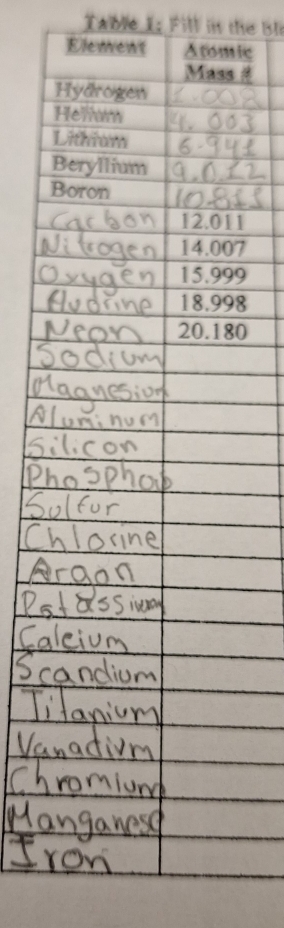 Table 1: Fill in the
Element Atomic
Mass #
Hydrogen 1.008
Helium 4.003
Lithium 6.941
Beryllium 9.012
Boron 10.811
Carbon 12.011
Nitrogen 14.007
Oxygen 15.999
fluorine 18.998
Neon 20.180
Sodium
Magnesium
Aluminum
Silicon
Sulfur
Chlorine
Argon
Potassium
Calcium
Scandium
Titanium
Vanadium
Chromium
Manganese
Iron